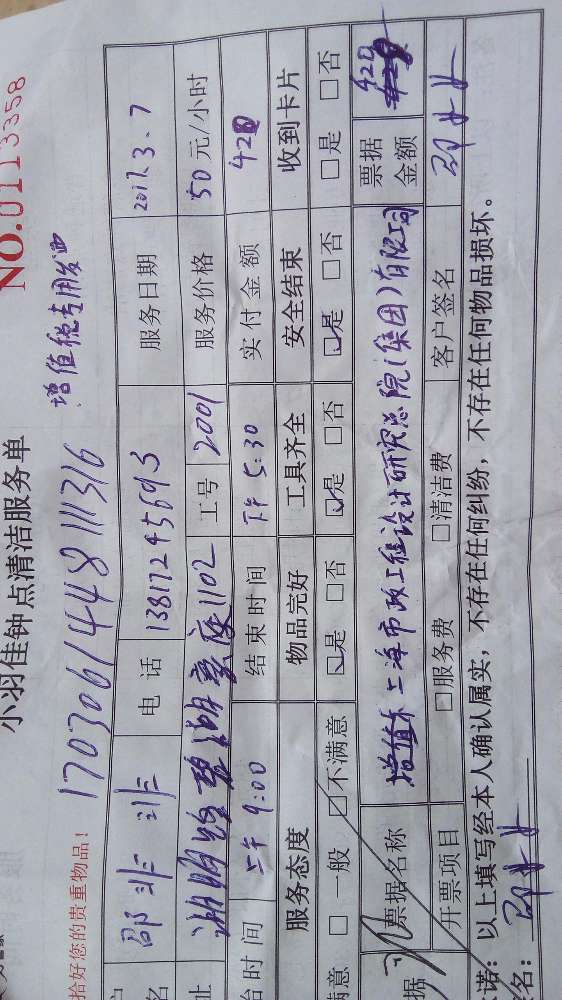 小羽佳钟点清洁服务单
NO.0113358
拾好您的贵重物品！
170306144481111316
增值税专用发票
户名 邵非非 电话 13817295693 服务日期 2017.3.7
址 1102 工号 2001 服务价格 50元/小时
始时间 上午9:00 结束时间 下午5:30 实付金额 420
服务态度 物品完好 工具齐全 安全结束 收到卡片
满意 □一般 □不满意 ☑是 □否 ☑是 □否 ☑是 □否 □是 □否
据 票据名称 上海市政工程设计研究总院(集团)有限公司 票据金额 420
开票项目 □服务费 □清洁费 客户签名 邵非非
诺：以上填写经本人确认属实，不存在任何纠纷，不存在任何物品损坏。
名：邵非非